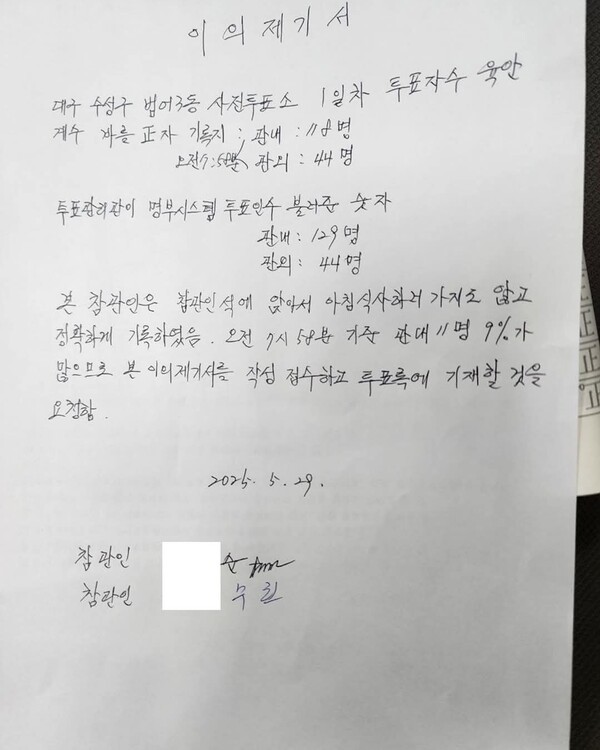 이의제기서
대구 수성구 범어3동 사전투표소 1일차 투표자수 육안
계수 바를 正자 기록지; 관내: 118명
오전7:58분, 관외: 44명
투표관리관이 명부시스템 투표인수 불러준 숫자
관내: 129명
관외: 44명
본 참관인은 참관인석에 앉아서 아침식사하러 가지도 않고
정확하게 기록하였음. 오전 7시 58분 기준 관내 11명 9%가
많으므로 본 이의제기서를 작성 접수하고 투표록에 기재할 것을
요청함.
2025. 5. 29.
참관인
참관인
正
正
正